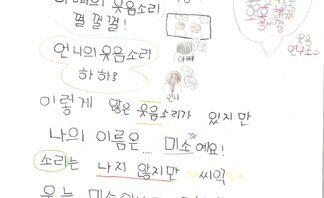 아빠의 웃음소리
껄껄껄!
언니의 웃음소리
하하!
아빠
언니
이렇게 많은 웃음소리가 있지만
나의 이름은.... 미소예요!
소리는 나지 않지만 씨익
웃는
웃음
연구소